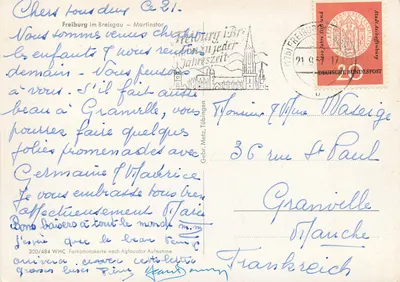 Chers tous deux Ce 21.
Freiburg im Breisgau — Martinstor
Nous sommes venus chercher
les enfants & nous rentrons
demain - Nous pensons
à vous - S'il fait aussi
beau à Granville, vous
pourrez faire quelques
jolies promenades avec
Germaine & Maurice
Je vous embrasse tous très
affectueusement Marie
Bons baisers à tout le monde
que le beau temps
grosses bises
300/484 WHC Farbenkamera nach Agfacolor Aufnahme
Gebr. Metz, Tübingen
Freiburg i. Br.
Zu jeder
Jahreszeit
FREIBURG
21.9.57.17
DEUTSCHE BUNDESPOST
20
Monsieur & Mme Waseige
36 rue St Paul
Granville
Manche
Frankreich